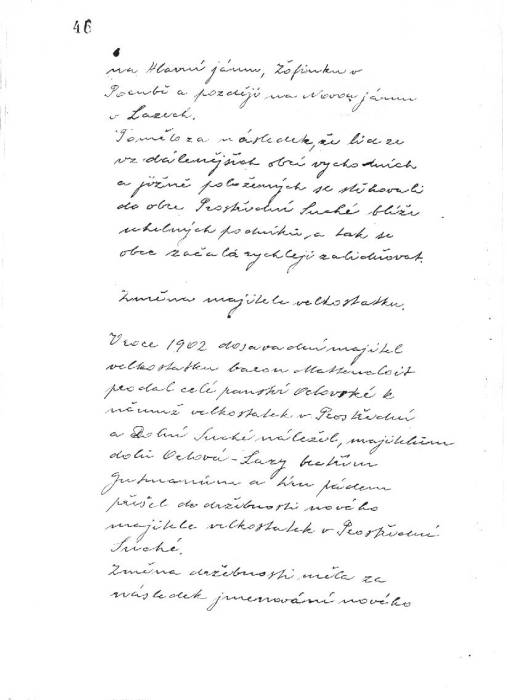 46
na Hlavní jámu, Žofinku v
Porubě a později na Novou jámu
v Lazech.
To mělo za následek, že lid ze
vzdálenějších obcí východních
a jižně položených se stěhovali
do obce Prostřední Suché blíže
uhelných podniků, a tak se
obec začala rychleji zalidňovat.
Změna majitele velkostatku.
V roce 1902 dosavadní majitel
velkostatku baron Mattencloit
prodal celé panství Orlovské k
němuž velkostatek v Prostřední
a Dolní Suché náležel, majitelům
dolů Orlová-Lazy bratřím
Gutmanům a tím pádem
přišel do držebnosti nového
majitele velkostatek v Prostřední
Suché.
Změna držebnosti měla za
následek jmenování nového